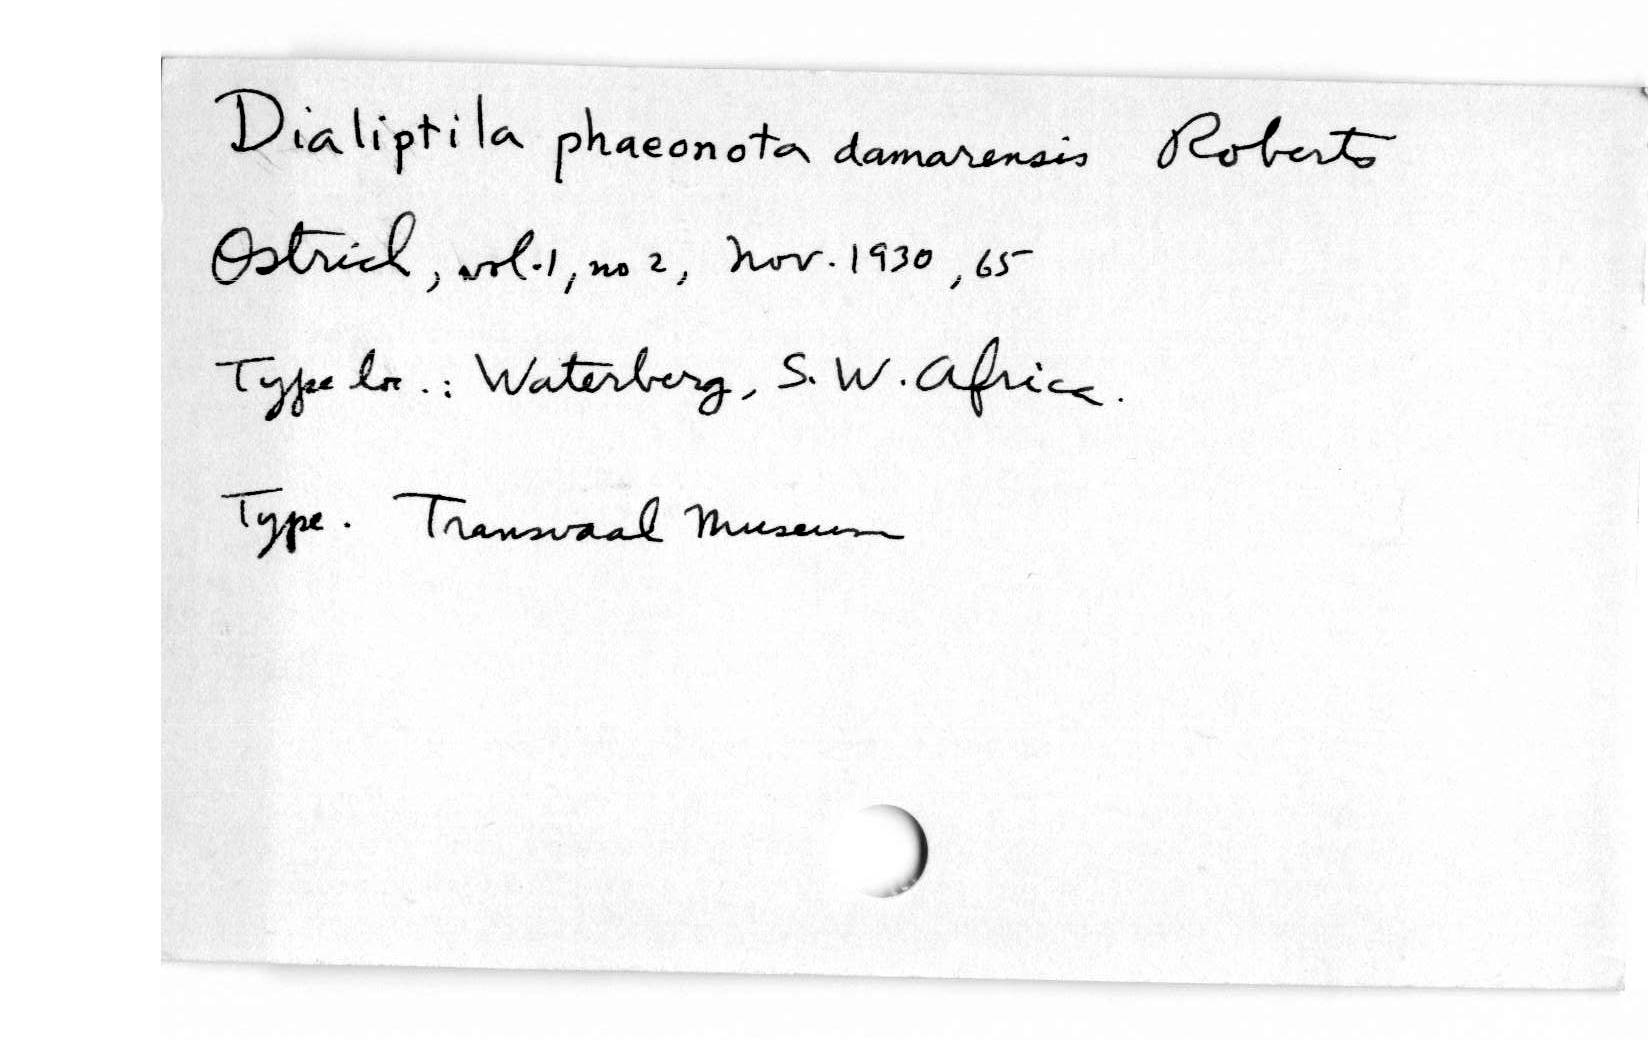 Dialiptila phaeonota damarensis Roberts
Ostrich, vol.1, no 2, Nov. 1930, 65
Type loc.: Waterberg, S. W. Africa.
Type. Transvaal Museum